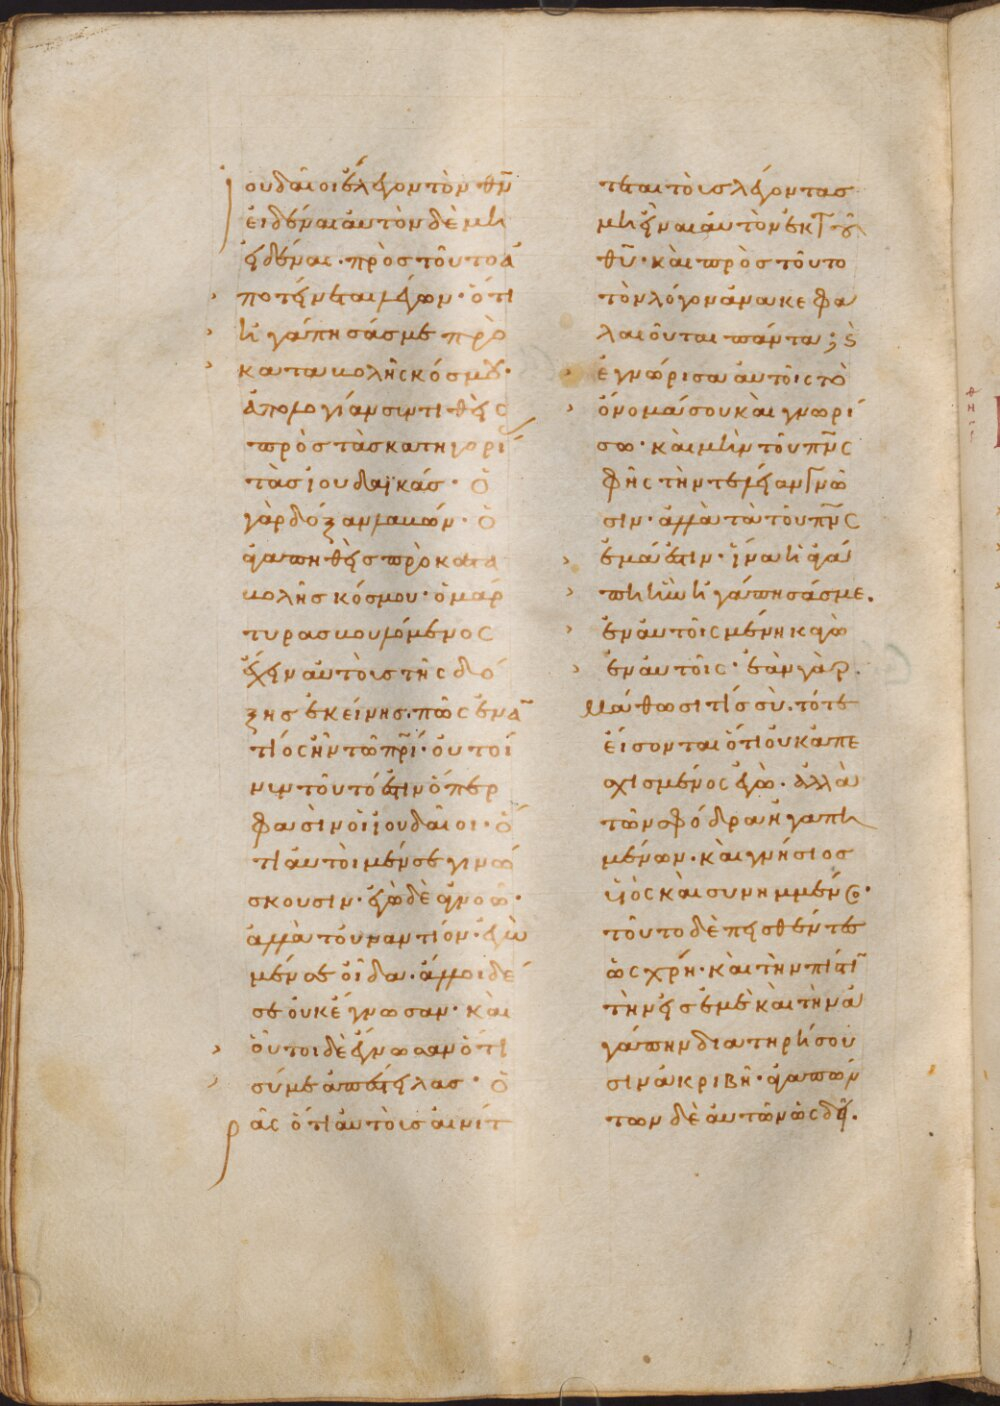 ἰουδαῖοι ἔλεγον τὸν θν̅
εἰδέναι αὐτὸν δὲ μὴ
εἰδέναι· πρὸς τοῦτο ἀ
ποτείνεται λέγων· ὅτι
ἠγάπησάς με πρὸ
καταβολῆς κόσμου·
ἀπολογίαν συντιθεὶς
πρὸς τὰς κατηγορί
τὰς ἰουδαϊκάς· ὁ
γὰρ δόξαν λαβών· ὁ
ἀγαπηθεὶς πρὸ κατα
βολῆς κόσμου· ὁ μάρ
τυρας βουλόμενος
ἔχειν αὐτοὺς τῆς δό
ξης ἐκείνης· πῶς ἐναν
τίος ἦν τῶ πρι̅· οὐ τοί
νυν τοῦτό ἐστιν ὅπερ
φασὶν οἱ ἰουδαῖοι· ὅ
τι αὐτοὶ μέν σε γινώ
σκουσιν· ἐγὼ δὲ ἀγνοῶ·
ἀλλὰ τοὐναντίον· ἐγὼ
μέν σε οἶδα· ἄλλοι δέ
σε οὐκ ἔγνωσαν· καὶ
οὗτοι δὲ ἔγνωσαν ὅτι
σύ με ἀπέστειλας· ὁ
ρᾶς ὅτι αὐτοὺς αἰνίτ
τεται τοὺς λέγοντας
μὴ εἶναι αὐτὸν ἐκ τοῦ
θυ̅· καὶ πρὸς τοῦτο
τὸν λόγον ἀνακεφα
λαιοῦται πάντα; ς̀
ἐγνώρισα αὐτοῖς τὸ
ὄνομά σου καὶ γνωρί
σω· καὶ μὴν τοῦ πνς̅
φῂς τὴν τελείαν γνῶ
σιν· ἀλλὰ τὰ τοῦ πνς̅
ἐμά ἐστιν· ἵνα ἡ ἀγά
πη ἣν ἠγάπησάς με.
ἐν αὐτοῖς μένη κἀγὼ
ἐν αὐτοῖς· ἐὰν γὰρ
μάθωσι τίς σὺ· τότε
εἴσονται ὅτι οὐκ ἀπε
σχισμένος ἐγὼ· ἀλλὰ
τῶν σφόδρα ἠγαπη
μένων· καὶ γνήσιος
υἱὸς καὶ συνημμένος·
τοῦτο δὲ πεισθέντες
ὡς χρή· καὶ τὴν πίστιν
τὴν εἰς ἐμὲ καὶ τὴν ἀ
γάπην διατηρήσου
σιν ἀκριβῆ· ἀγαπών
των δὲ αὐτῶν ὡς δεῖ.
φη